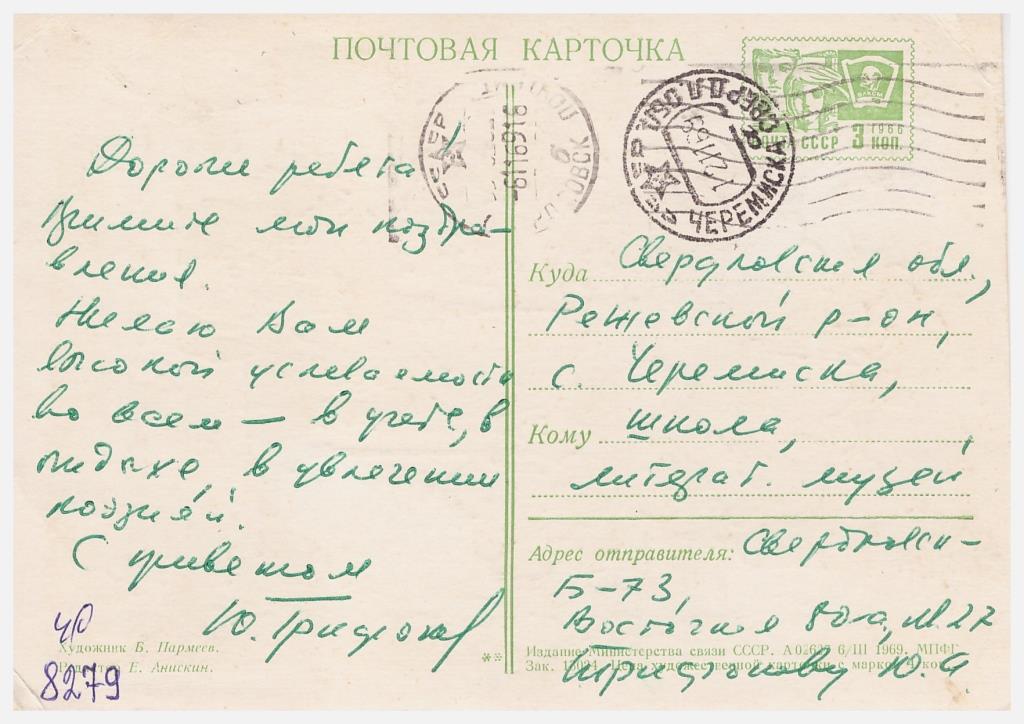 ПОЧТОВАЯ КАРТОЧКА
ПОЧТА СССР 3 КОП.
1966
ВЛКСМ
-6116916
ЧЕРЕМИСКА СВЕРДЛ. ОБЛ.
Дороги ребята
Примите мои поздра-
вления.
Желаю Вам
высокой успеваемости
во всем — в учебе, в
отдыхе, в увлечении
поэзией.
С приветом
Ю. Трифонов
Куда Свердловская обл.,
Режевской р-он,
с. Черемиска,
Кому школа,
литерат. музей
Адрес отправителя: Свердловск-
Б-73,
Восточная 80а, 27
Трифонову Ю. А.
Художник Б. Пармеев.
Редактор Е. Анискин.
**
Издание Министерства связи СССР. 6/III 1969. МПФГ
Зак. 13024. Цена художественной карточки с маркой 4 коп.
чр
8279